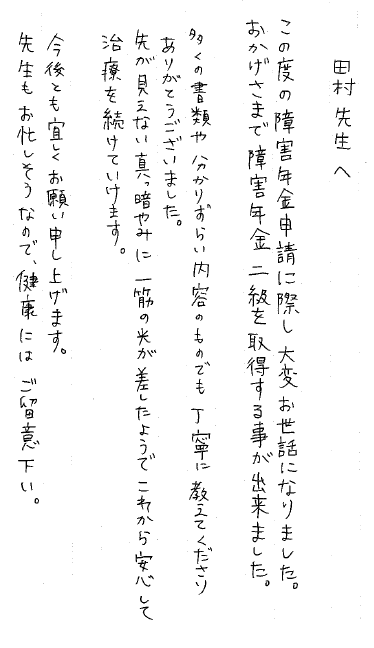 田村先生へ
この度の障害年金申請に際し大変お世話になりました。
おかげさまで障害年金二級を取得する事が出来ました。
多くの書類や分かりずらい内容のものでも丁寧に教えてくださり
ありがとうございました。
先が見えない真っ暗やみに一筋の光が差したようでこれから安心して
治療を続けていけます。
今後とも宜しくお願い申し上げます。
先生もお忙しそうなので、健康にはご留意下い。